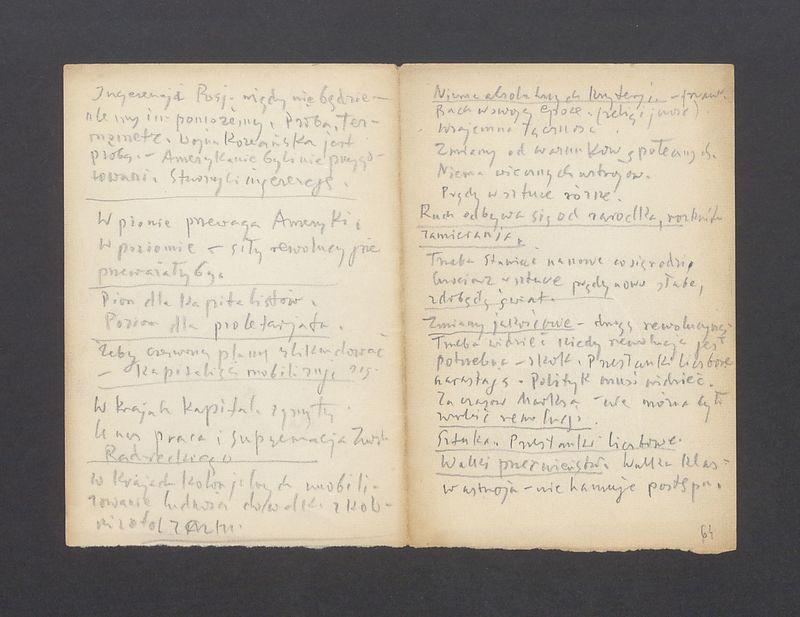 Ingerencja Rosji nigdy nie będzie
Próba ter-
mometr. Wojna Koreańska jest
próbą. – Amerykanie byli nie przygo-
towani. Stworzyli ingerencję.
W pionie przewaga Ameryki,
W poziomie – siły rewolucyjne
przeważałyby.
Pion dla kapitalistów.
Poziom dla proletarjata.
Żeby czerwone plamy zlikwidować
– Kapitaliści mobilizują się.
W krajach kapital.
U nas praca i supremacja Zwią
Radzieckiego
W krajach kolonjalnych mobili-
zowanie ludności do walki z kolo-
nizatorzami.
Niema absolutnych kryterji –
Ruch w nowej epoce. (religijność).
Wzajemna łączność.
Zmiany od warunków społecznych.
Niema wiecznych ustrojów.
Prądy w sztuce różne.
Ruch odbywa się od zarodka, rozkwitu
zamierania.
Trzeba stawiać na nowe co się rodzi,
chociaż w sztuce prądy nowe słabe,
zdobędą świat.
Zmiany jakościowe – drogą rewolucyjną.
Trzeba widzieć kiedy rewolucja jest
potrzebna – skok. Przesłanki liczbowe
narastają. Polityk musi widzieć.
Za czasów Marksa – nie można było
zrobić rewolucji.
Sztuka. Przesłanki liczbowe.
Walki przeciwieństw. Walka klas –
w ustroju – nie hamuje postępu.
64